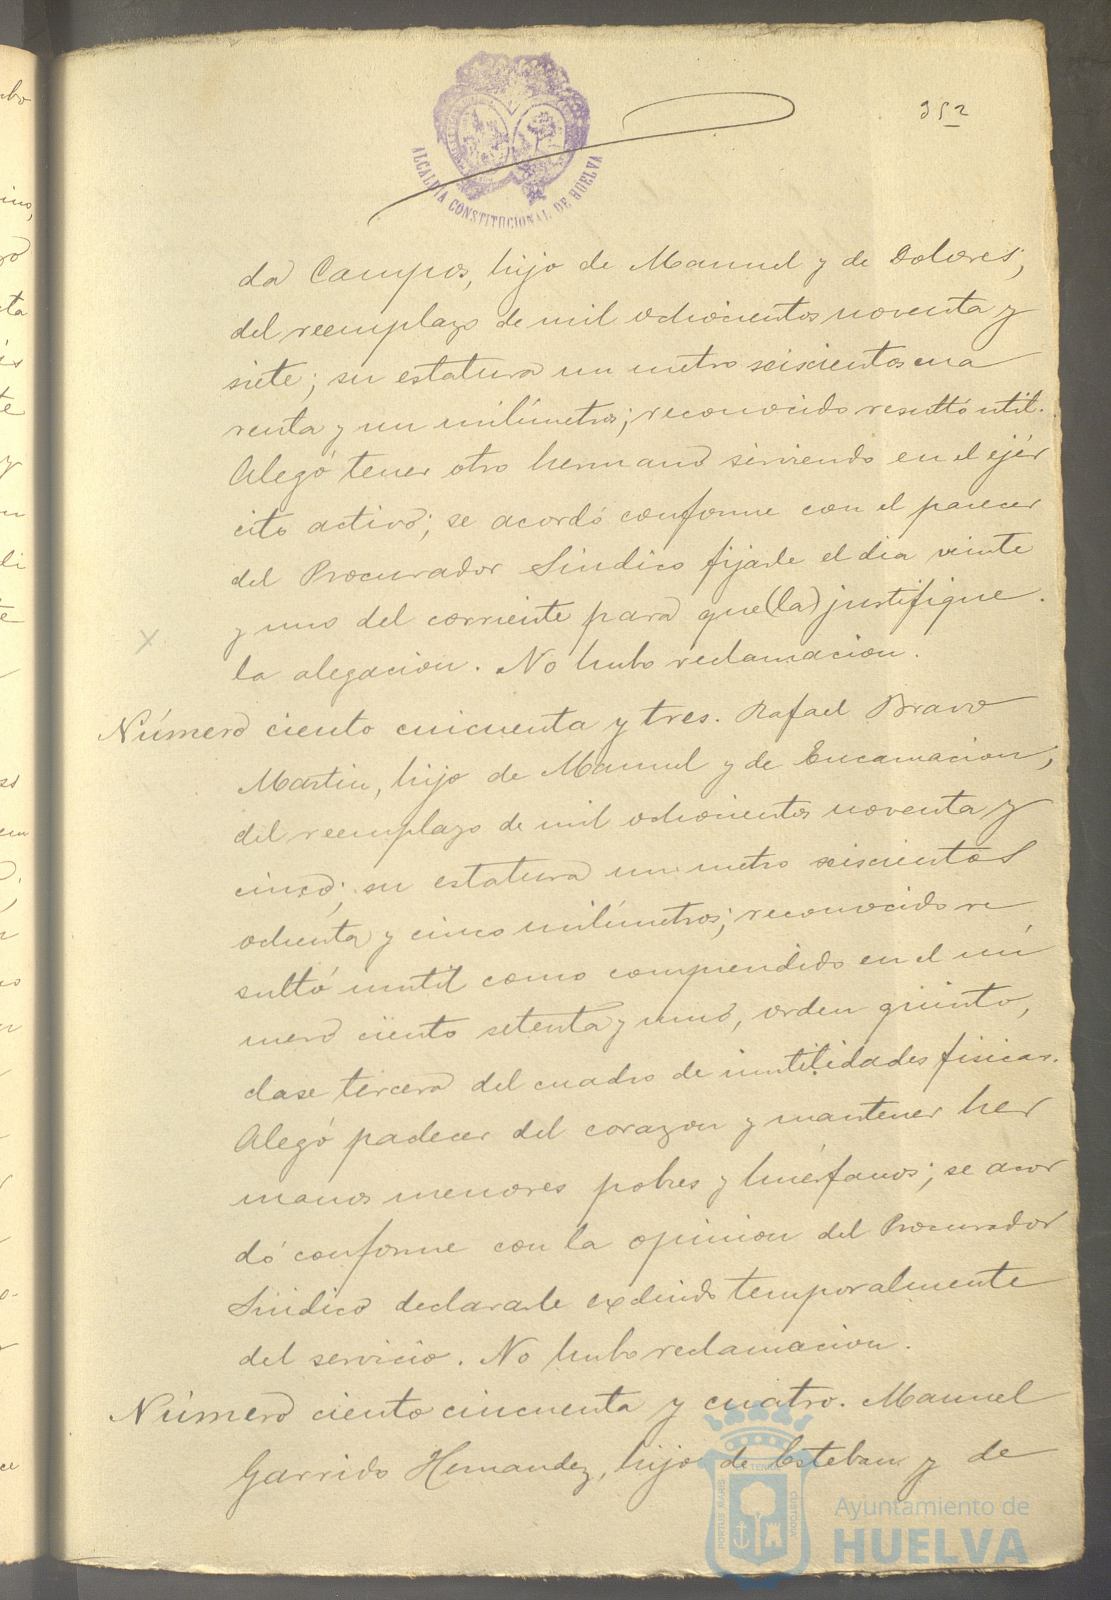 352
ALCALDIA CONSTITUCIONAL DE HUELVA
da Campos, hijo de Manuel y de Dolores,
del reemplazo de mil ochocientos noventa y
siete; su estatura un metro seiscientos cua
renta y un milímetros; reconocido resultó util.
Alegó tener otro hermano sirviendo en el ejér
cito activo; se acordó conforme con el parecer
del Procurador Sindico fijarle el dia veinte
y uno del corriente para que (la) justifique
la alegacion. No hubo reclamacion.
Número ciento cincuenta y tres. Rafael Bravo
Martin, hijo de Manuel y de Encarnacion,
del reemplazo de mil ochocientos noventa y
cinco; su estatura un metro seiscientos
ochenta y cinco milímetros; reconocido re
sultó inutil como comprendido en el nú
mero ciento setenta y uno, orden quinto,
clase tercera del cuadro de inutilidades fisicas.
Alegó padecer del corazon y mantener her
manos menores pobres y huérfanos; se acor
dó conforme con la opinion del Procurador
Sindico declararle excluido temporalmente
del servicio. No hubo reclamacion.
Número ciento cincuenta y cuatro. Manuel
Garrido Hernandez, hijo de Esteban y de
Ayuntamiento de
HUELVA